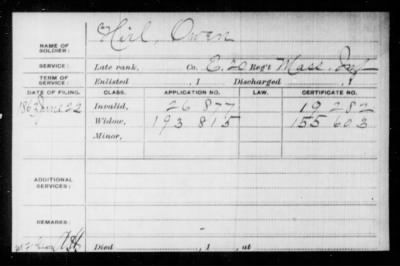 NAME OF SOLDIER: Hirl, Owen
SERVICE: Late rank, Co. E. 20 Reg't Mass. Inf
TERM OF SERVICE: Enlisted , 1 Discharged , 1
DATE OF FILING. CLASS. APPLICATION NO. LAW. CERTIFICATE NO.
1863 June 22 Invalid, 26 877 19 282
Widow, 193 815 155 603
Minor,
ADDITIONAL SERVICES:
REMARKS:
Died , 1 , at